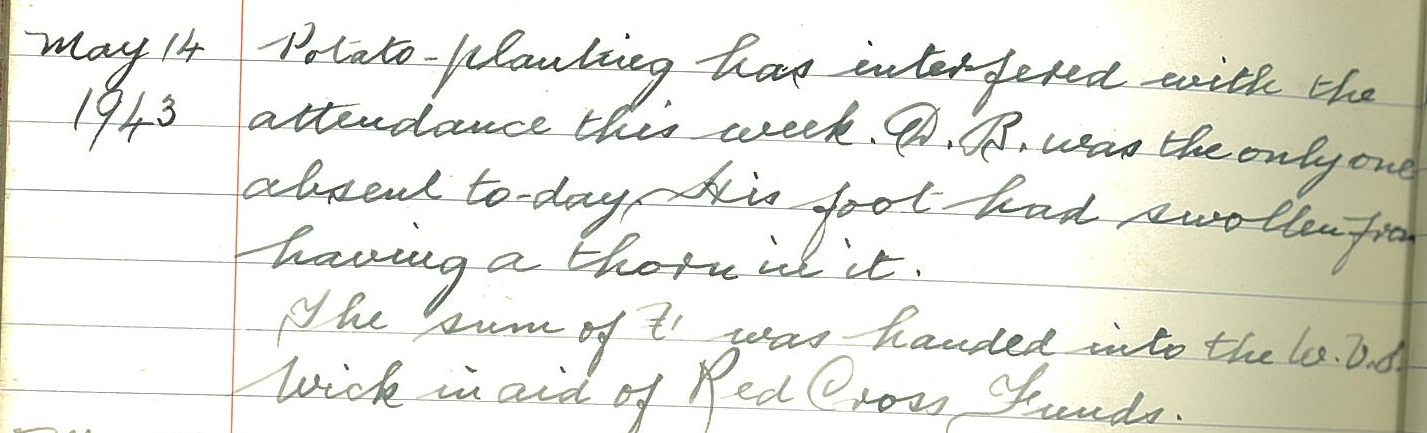 May 14 Potato-planting has interfered with the
1943 attendance this week. D. B. was the only one
absent to-day. His foot had swollen from
having a thorn in it.
The sum of £1 was handed into the W.V.S.
Wick in aid of Red Cross Funds.